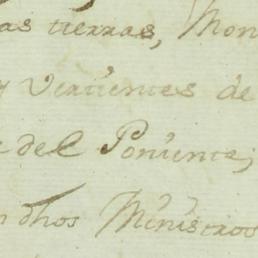 as tierras, Mon
y Vertientes de
e del Poniente;
n dhos Ministros